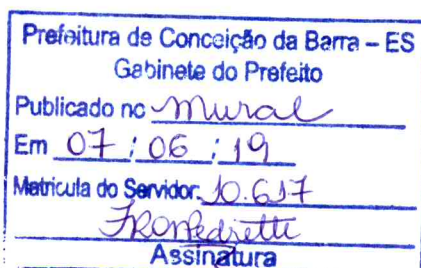 Prefeitura de Conceição da Barra – ES
Gabinete do Prefeito
Publicado no Mural
Em 07 / 06 / 19
Matricula do Servidor: 10.617
Assinatura